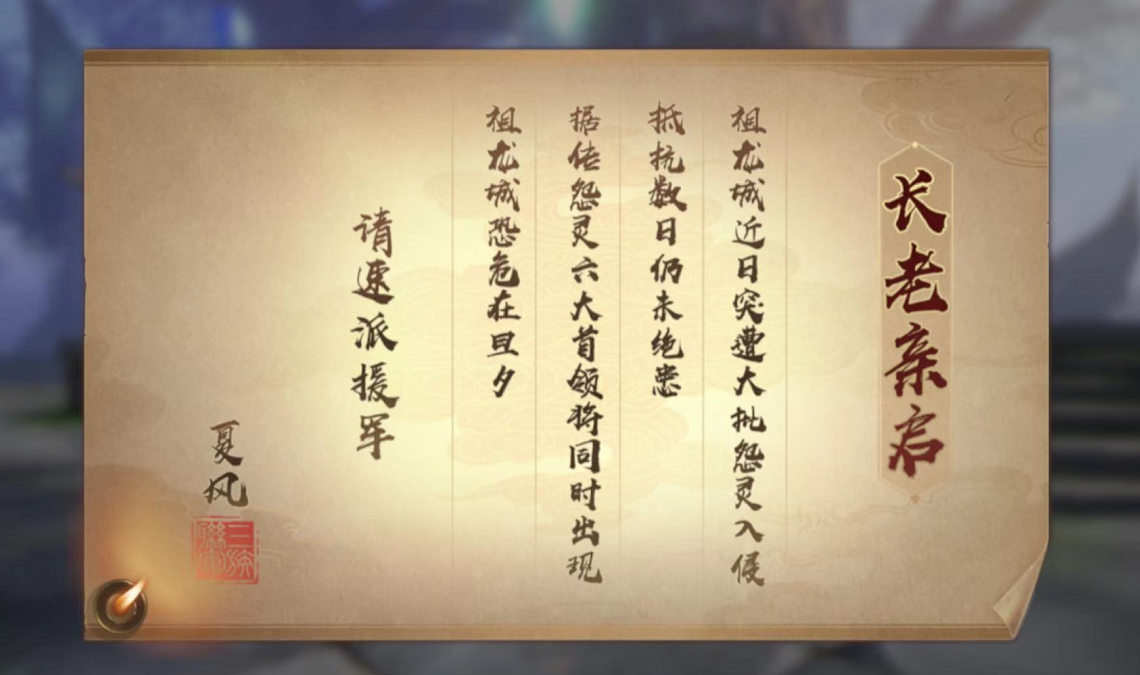 长老亲启
祖龙城近日突遭大批怨灵入侵
抵抗数日仍未绝患
据传怨灵六大首领将同时出现
祖龙城恐危在旦夕
请速派援军
夏风
三族
联军